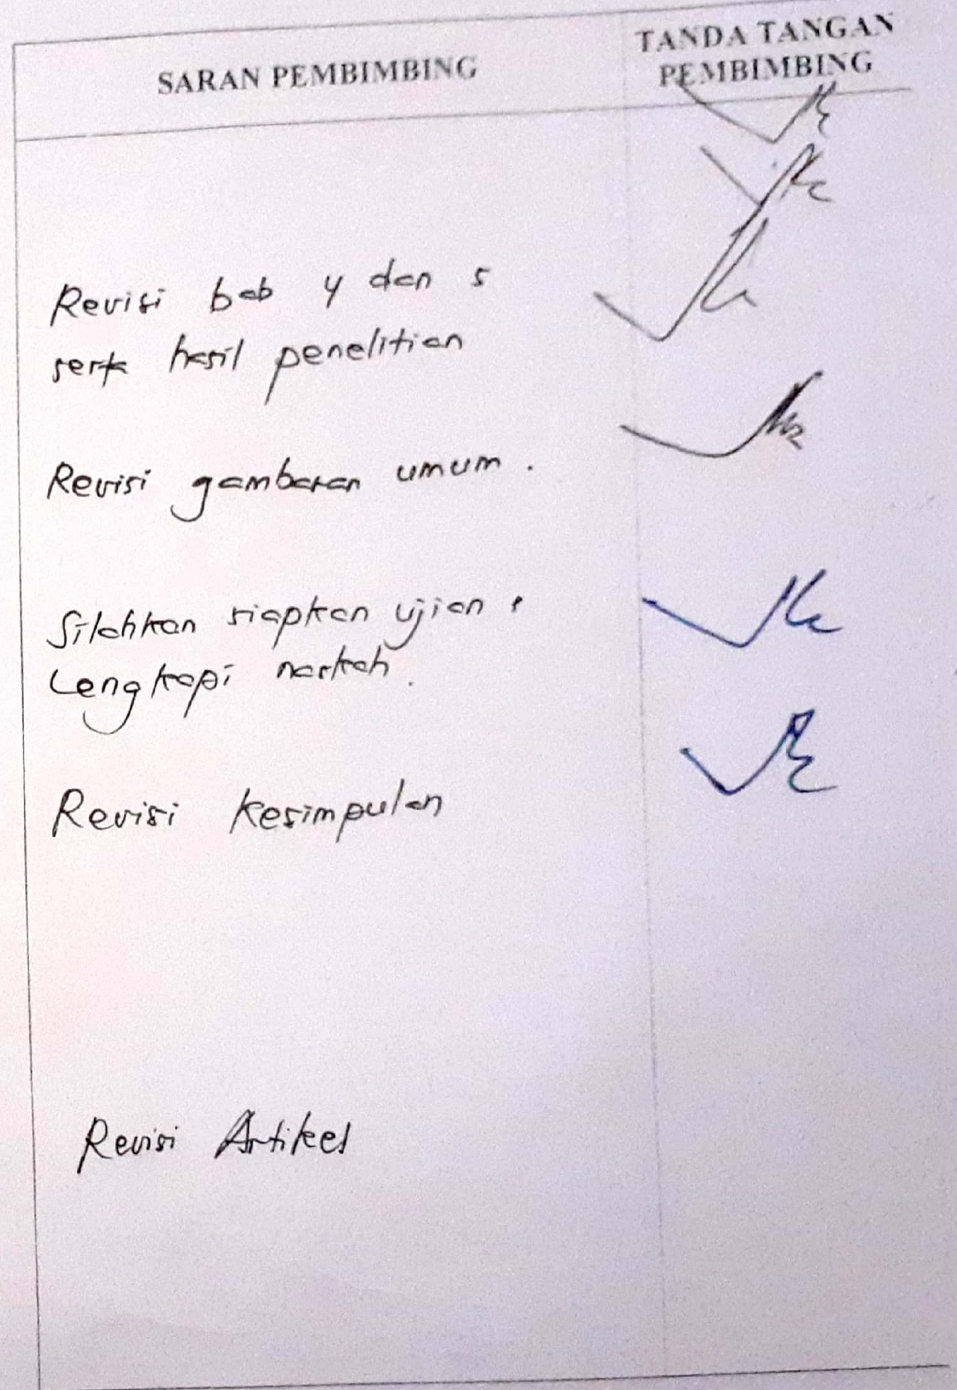 SARAN PEMBIMBING
TANDA TANGAN
PEMBIMBING
Revisi bab 4 dan 5
serta hasil penelitian
Revisi gambaran umum .
Silahkan siapkan ujian,
Lengkapi naskah.
Revisi Kesimpulan
Revisi Artikel